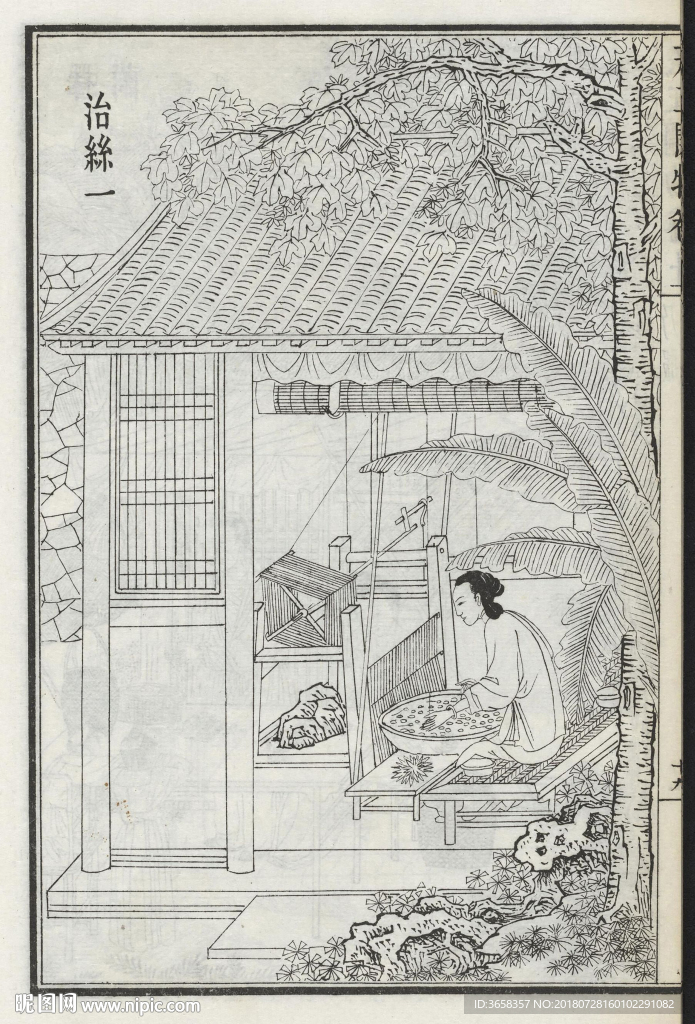 治絲一
十九
昵图网 www.nipic.com
ID:3658357 NO:20180728160102291082